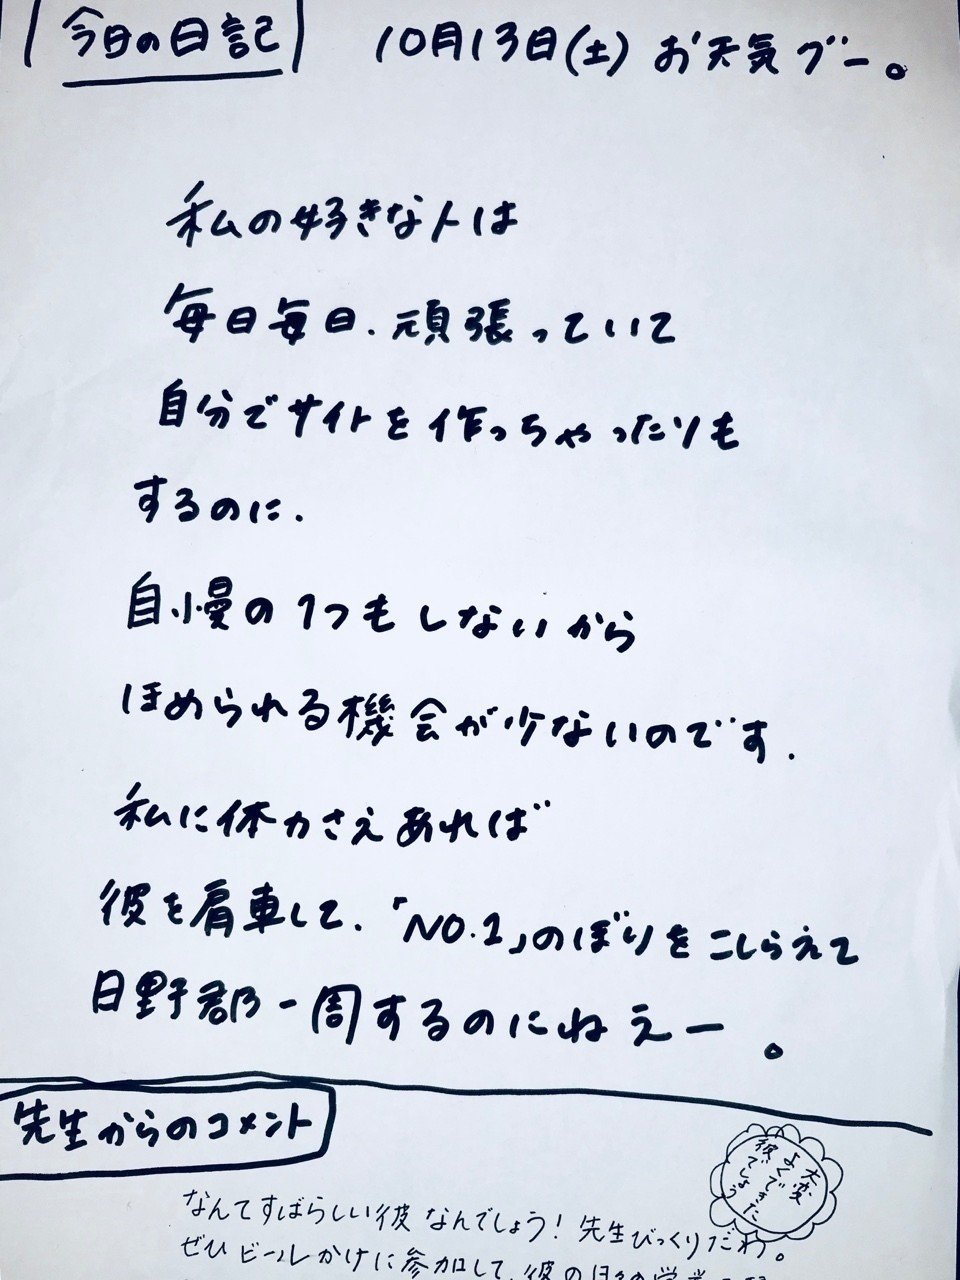 今日の日記 10月13日(土) お天気グー。
私の好きな人は
毎日毎日.頑張っていて
自分でサイトを作っちゃったりも
するのに.
自慢の1つもしないから
ほめられる機会が少ないのです.
私に体力さえあれば
彼を肩車して.「NO.1」のぼりをこしらえて
日野郡一周するのにねえー。
先生からのコメント
大変
よくできた
彼でしょう
なんてすばらしい彼なんでしょう!先生びっくりだわ。
ぜひビールかけに参加して、彼の日々の